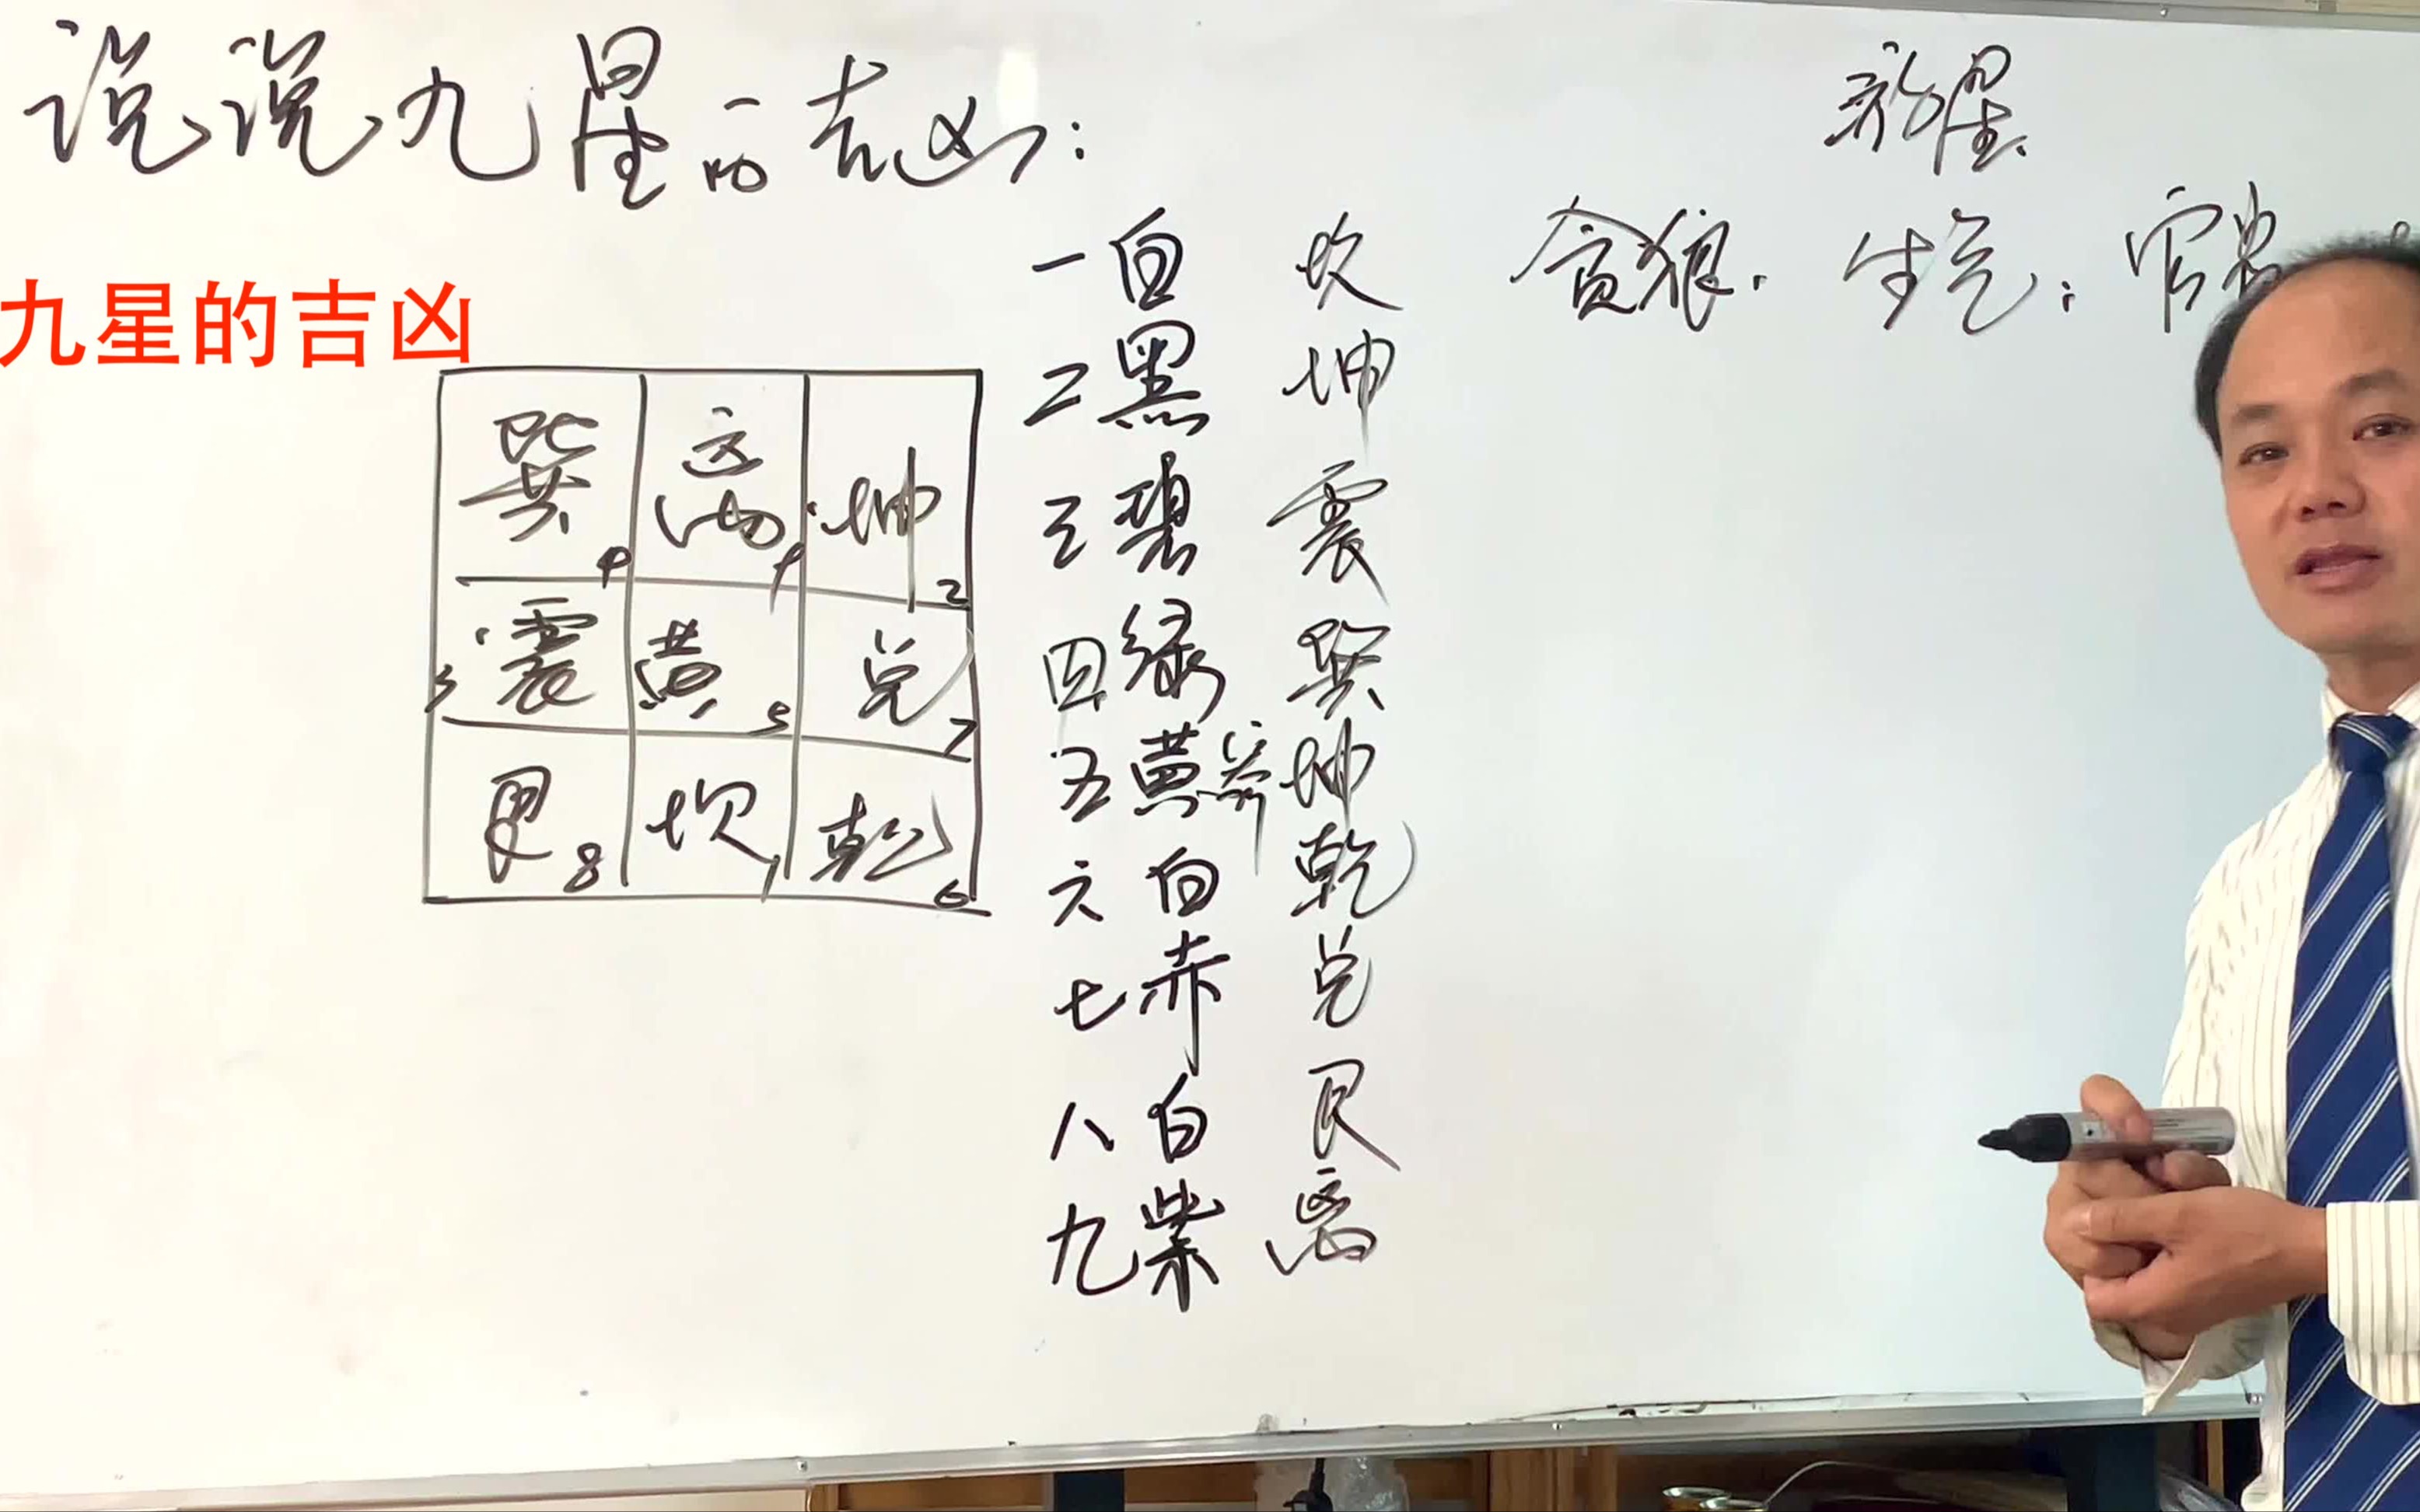 说说九星的吉凶:
九星的吉凶
巽4 离9 坤2
3震 黄5 兑7
艮8 坎1 乾6
一白 坎 贪狼. 生气: 官
二黑 坤
三碧 震
四绿 巽
五黄 坤
六白 乾
七赤 兑
八白 艮
九紫 离